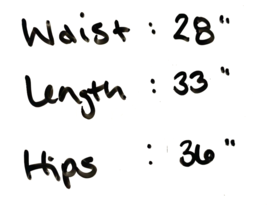 Waist : 28"
Length : 33"
Hips : 36"